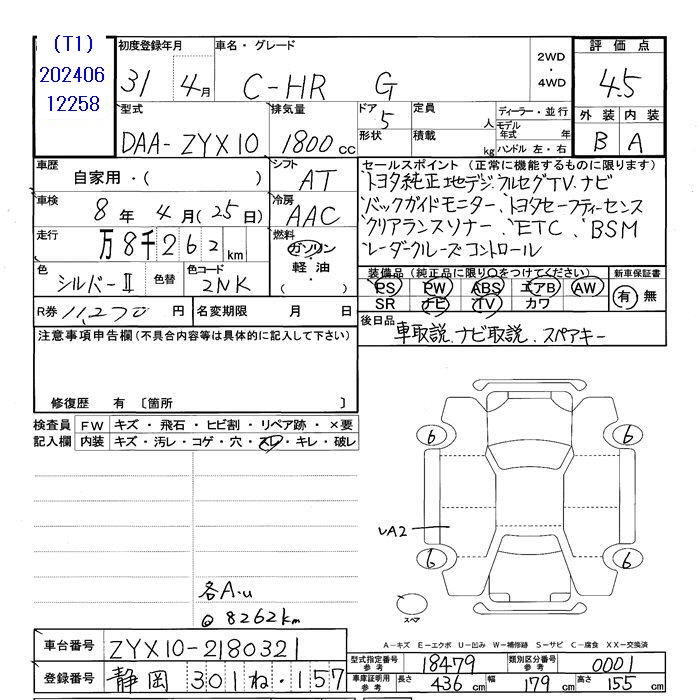 (T1)
202406
12258
初度登録年月
31 4月
車名・グレード
C-HR G
2WD
・
4WD
評価点
4.5
外装 内装
B A
型式
DAA-ZYX10
排気量
1800cc
ドア 5
形状
定員 人
積載 kg
ディーラー・並行
モデル年式 年
ハンドル 左・右
車歴
自家用・( )
シフト
AT
車検
8年4月(25日)
冷房
AAC
走行
万8千262km
燃料
ガソリン
・
軽油
・
( )
色
シルバーⅡ
色替
色コード
2NK
R券 11,270円
名変期限 月 日
セールスポイント (正常に機能するものに限ります)
トヨタ純正地デジ、フルセグTV、ナビ
バックガイドモニター、トヨタセーフティーセンス
クリアランスソナー、ETC、BSM
レーダークルーズコントロール
装備品(純正品に限り○をつけてください)
PS PW ABS エアB AW
SR ナビ TV カワ
新車保証書
有・無
後日品
車取説、ナビ取説、スペアキー
注意事項申告欄(不具合内容等は具体的に記入して下さい)
修復歴 有〔箇所 〕
検査員記入欄
FW キズ・飛石・ヒビ割・リペア跡・×要
内装 キズ・汚レ・コゲ・穴・スレ・キレ・破レ
6 6
UA2
6 6
各A.u
@8262km
スペア
A-キズ E-エクボ U-凹み W-補修跡 S-サビ C-腐食 XX-交換済
車台番号 ZYX10-2180321
登録番号 静岡 301 ね・157
型式指定番号参考 18479 類別区分番号参考 0001
車庫証明用参考 長さ 436cm 幅 179cm 高さ 155cm